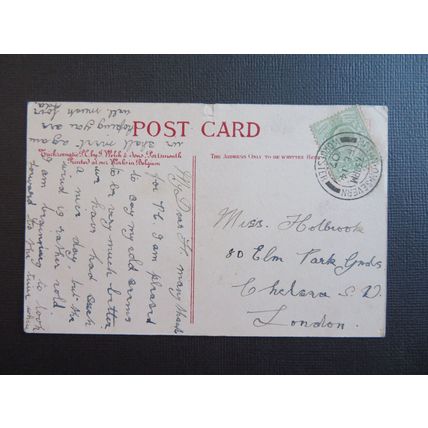 POST CARD
Trichromatic N. by J. Welch & Sons, Portsmouth
Printed at our Works in Belgium
THE ADDRESS ONLY TO BE WRITTEN HERE
Miss. Holbrook
80 Elm Park Gnds
Chelsea S. W.
London.
My Dear H. many thanks
for I am pleased
to say my cold seems
to be very much better
we have had such
a nice day. but the
wind is rather cold
I am beginning to look
forward to the time when
we shall meet again
hoping you are
well. much love